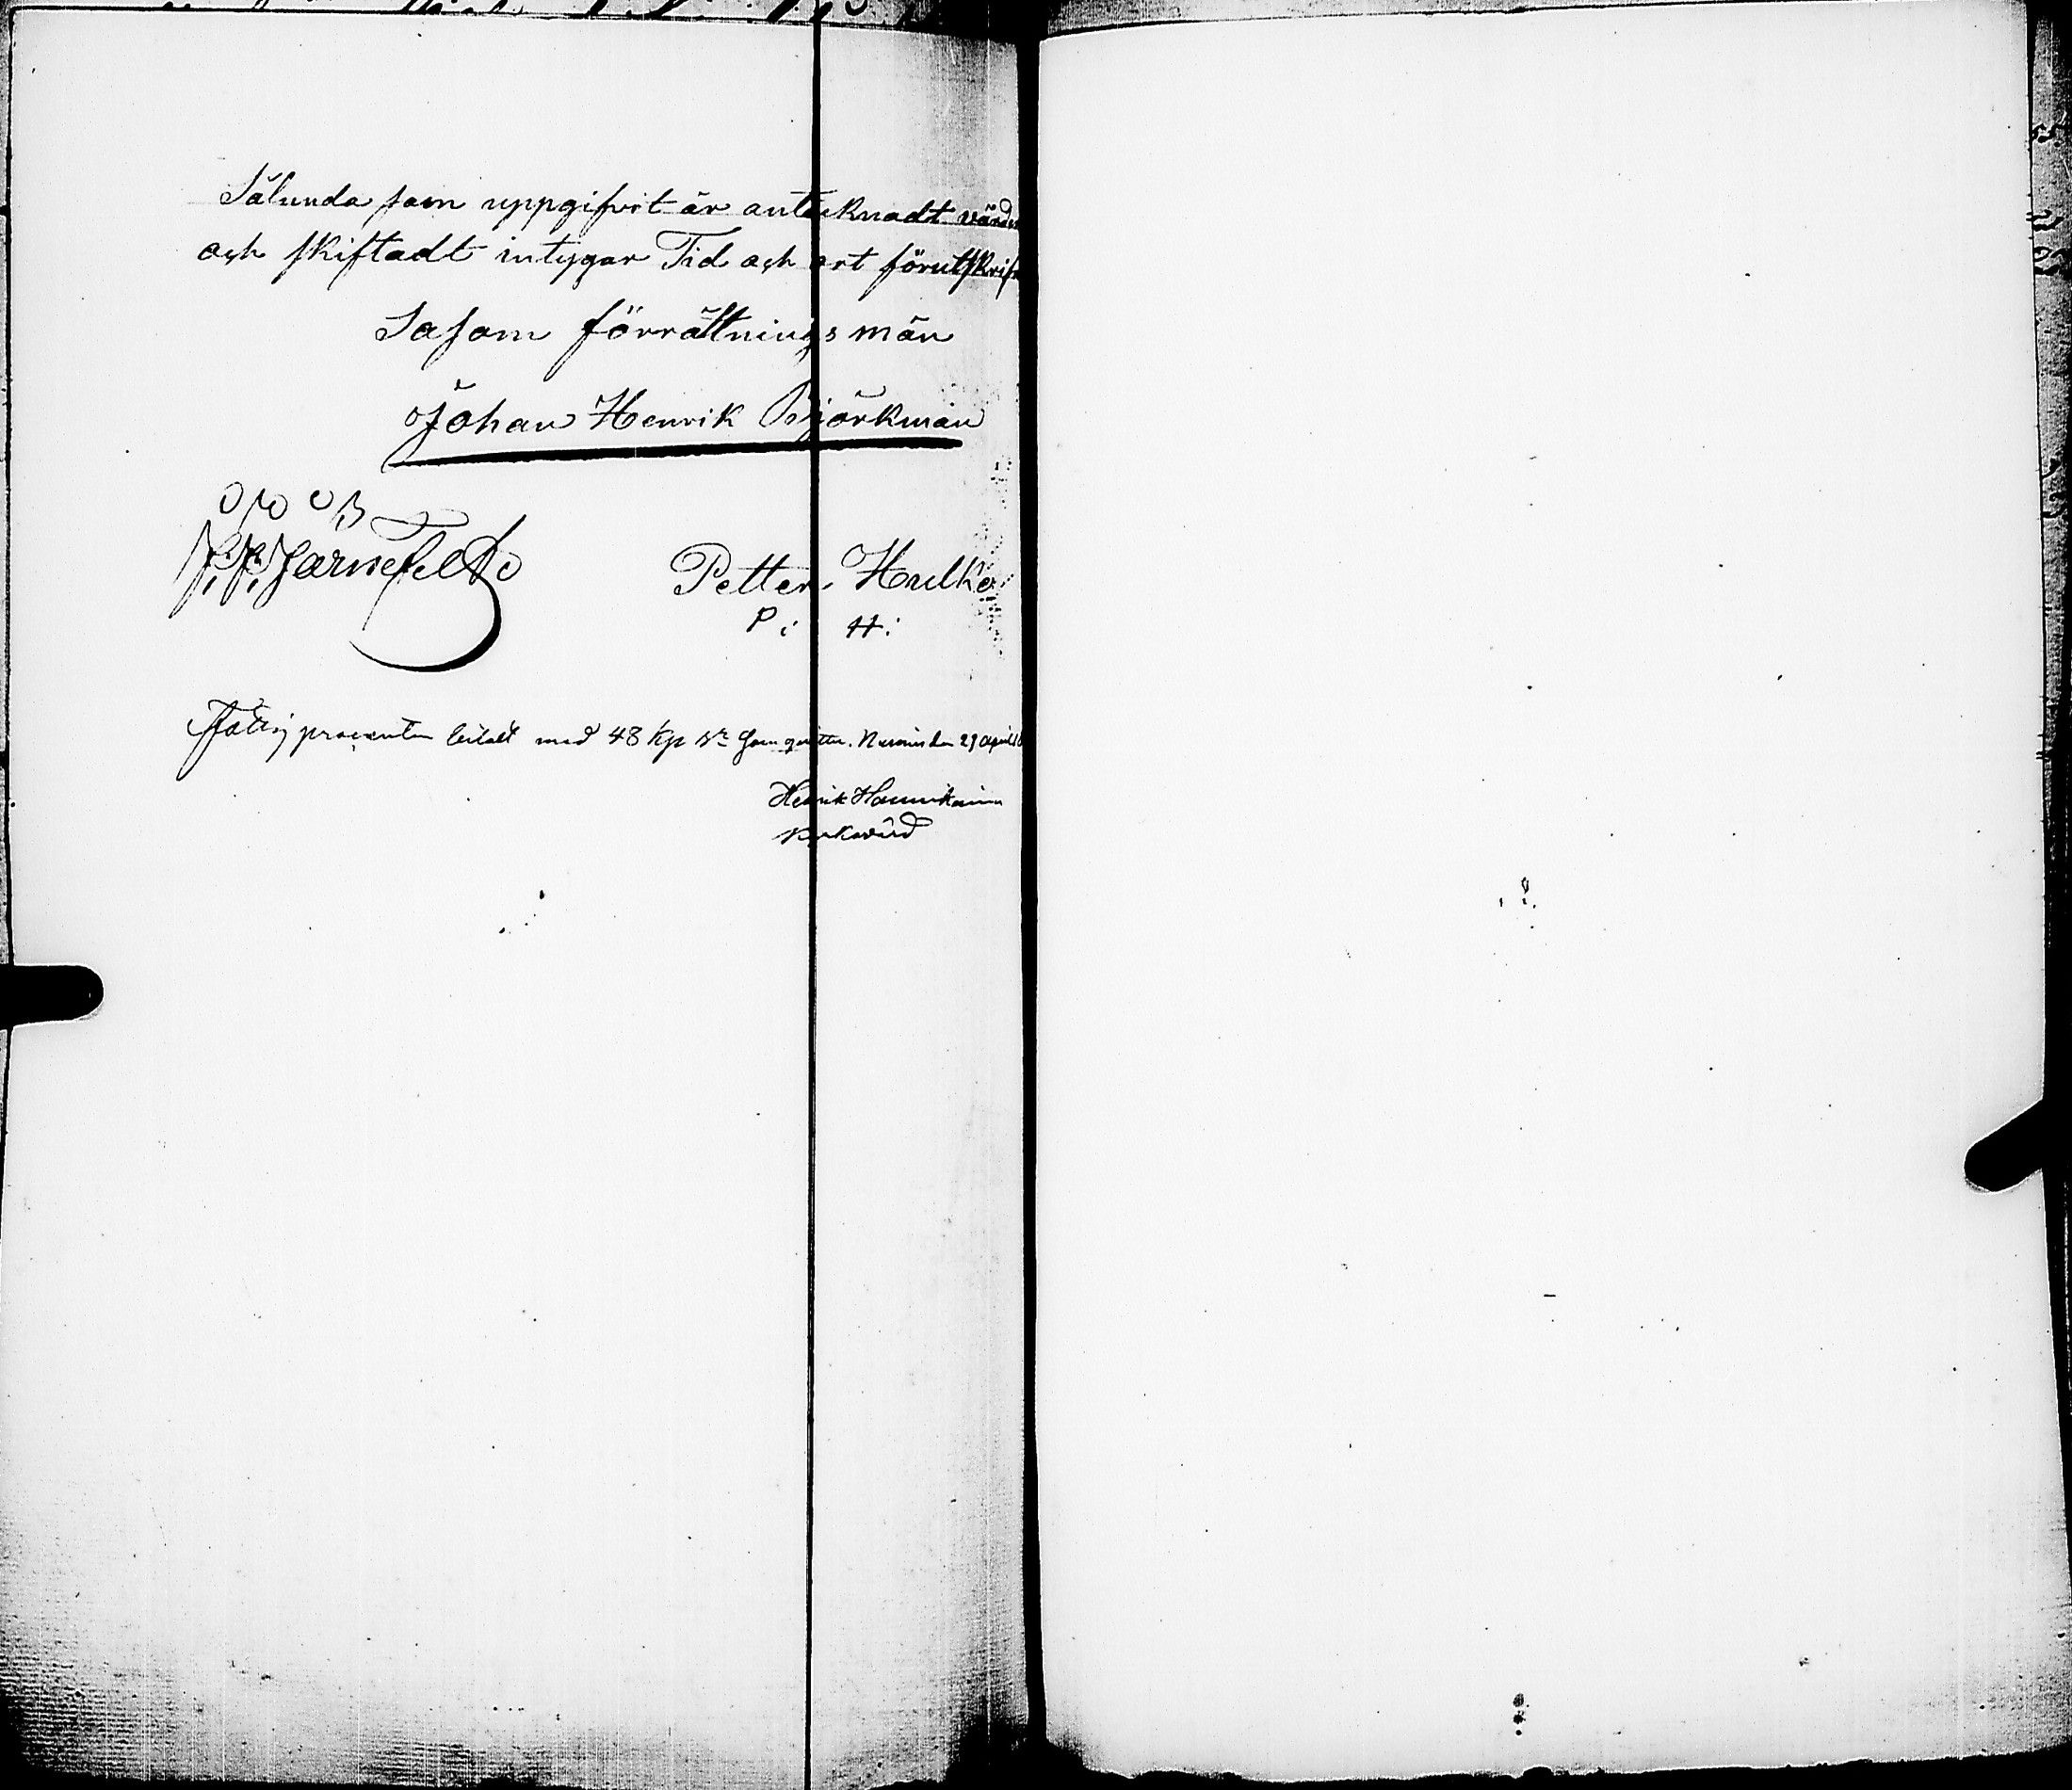 Sålunda som uppgifvit är antecknadt värde
och skiftadt intygar Tid och ort förutskrif
Såsom förrättnings män
Johan Henrik Björkman
Järnefelt
Petter Hulko
P: H:
Fattig procenten betalt med 48 Kp Sr den 29 April
Henrik
Kyrkovärd